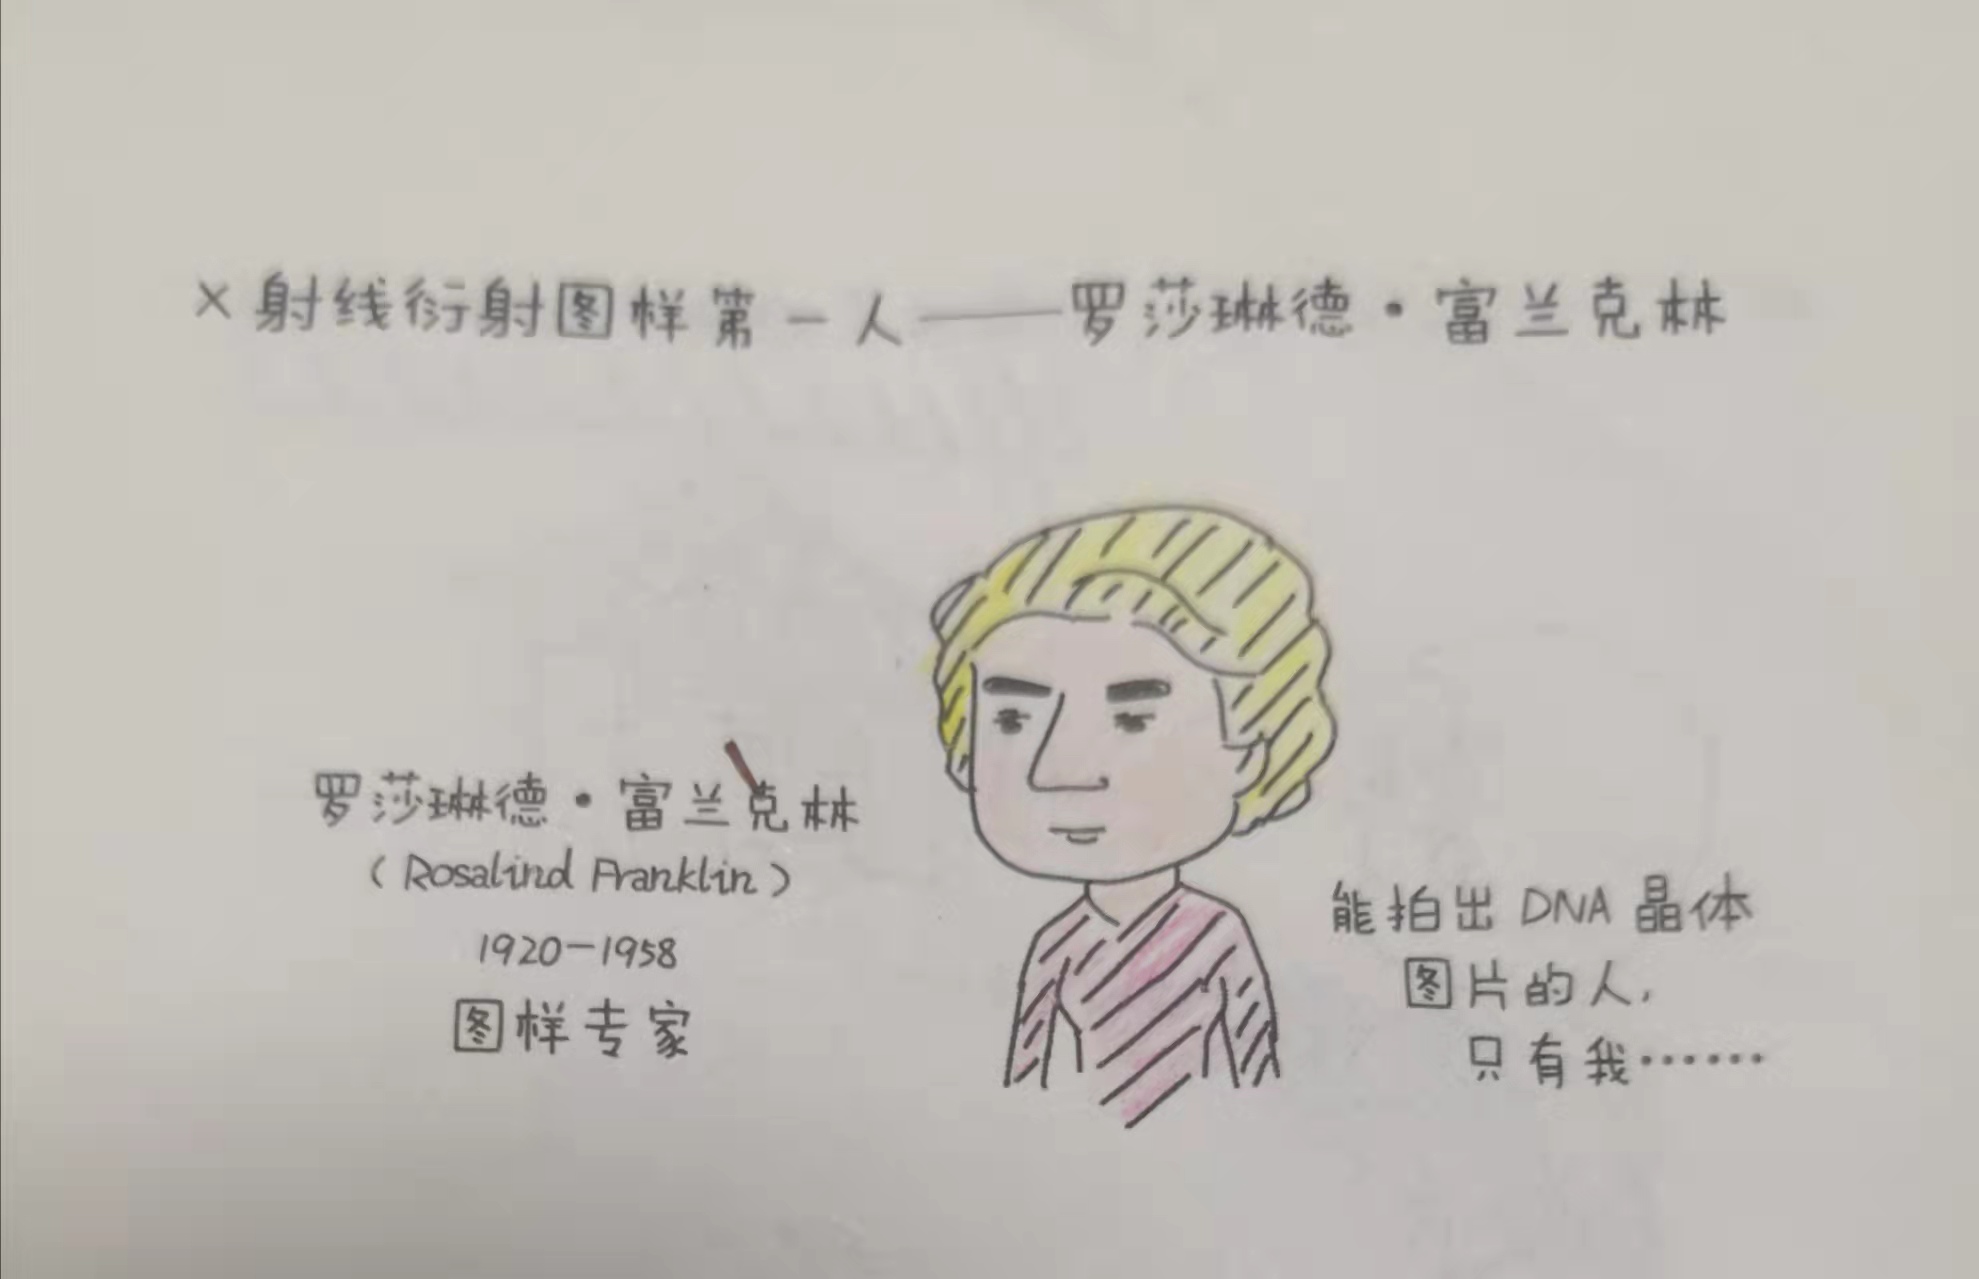 X射线衍射图样第一人——罗莎琳德·富兰克林
罗莎琳德·富兰克林
(Rosalind Franklin)
1920-1958
图样专家
能拍出DNA晶体
图片的人,
只有我······